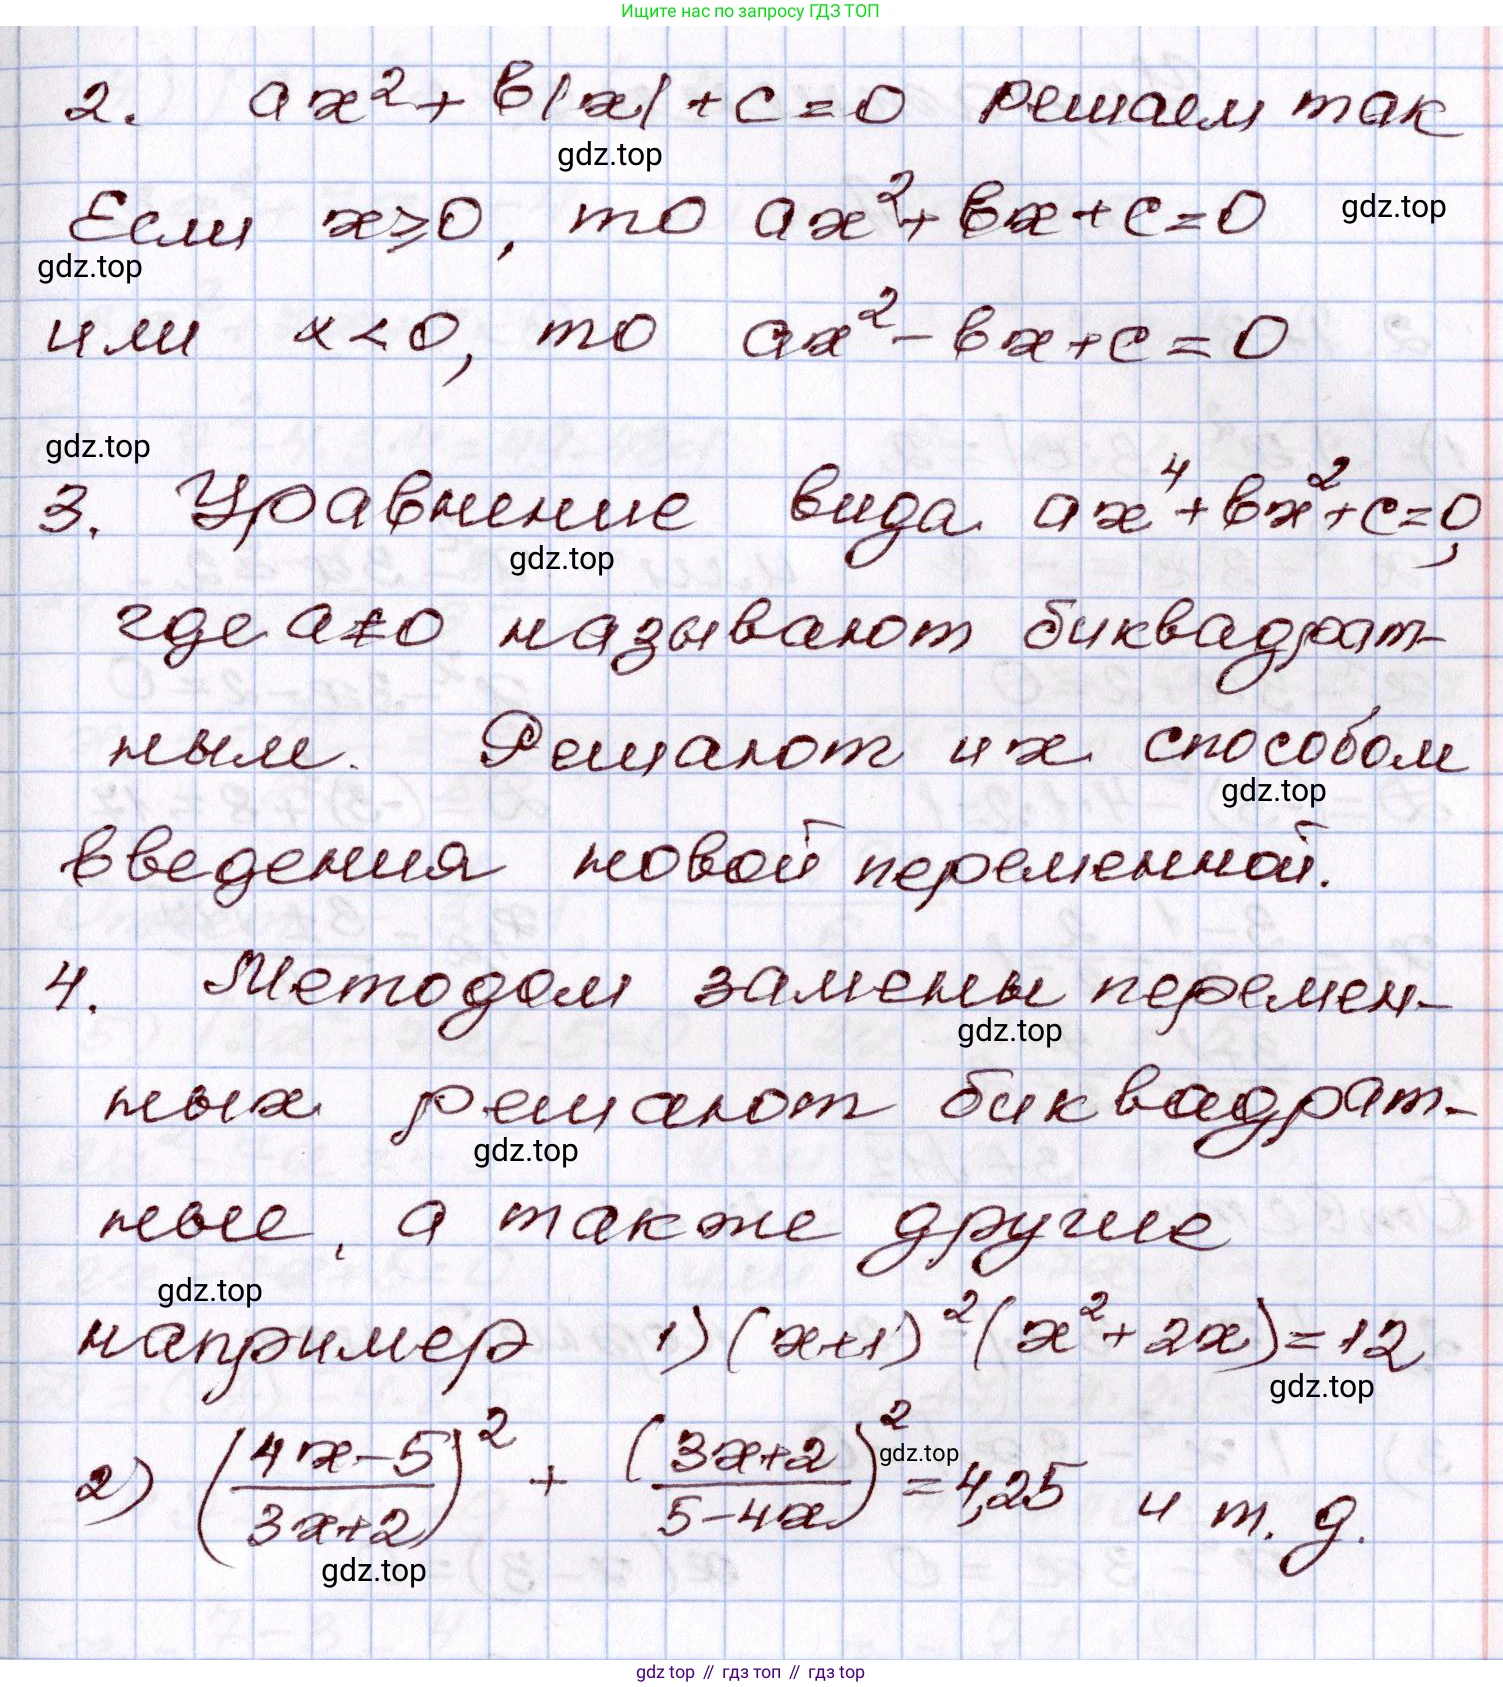 Ищите нас по запросу ГДЗ ТОП
2. ax² + b|x| + c = 0 решаем так
gdz.top
Если x ≥ 0, то ax² + bx + c = 0
gdz.top
gdz.top
или x < 0, то ax² - bx + c = 0
gdz.top
3. Уравнение вида ax⁴ + bx² + c = 0,
gdz.top
где a ≠ 0 называют биквадрат-
ным. Решают их способом
gdz.top
введения новой переменной.
4. Методом замены перемен-
gdz.top
ных решают биквадрат-
gdz.top
ные, а также другие
gdz.top
например 1) (x+1)² (x² + 2x) = 12
gdz.top
2) ((4x-5)/(3x+2))² + ((3x+2)/(5-4x))² = 4,25 и т. д.
gdz.top
gdz.top
gdz top // гдз топ // гдз top